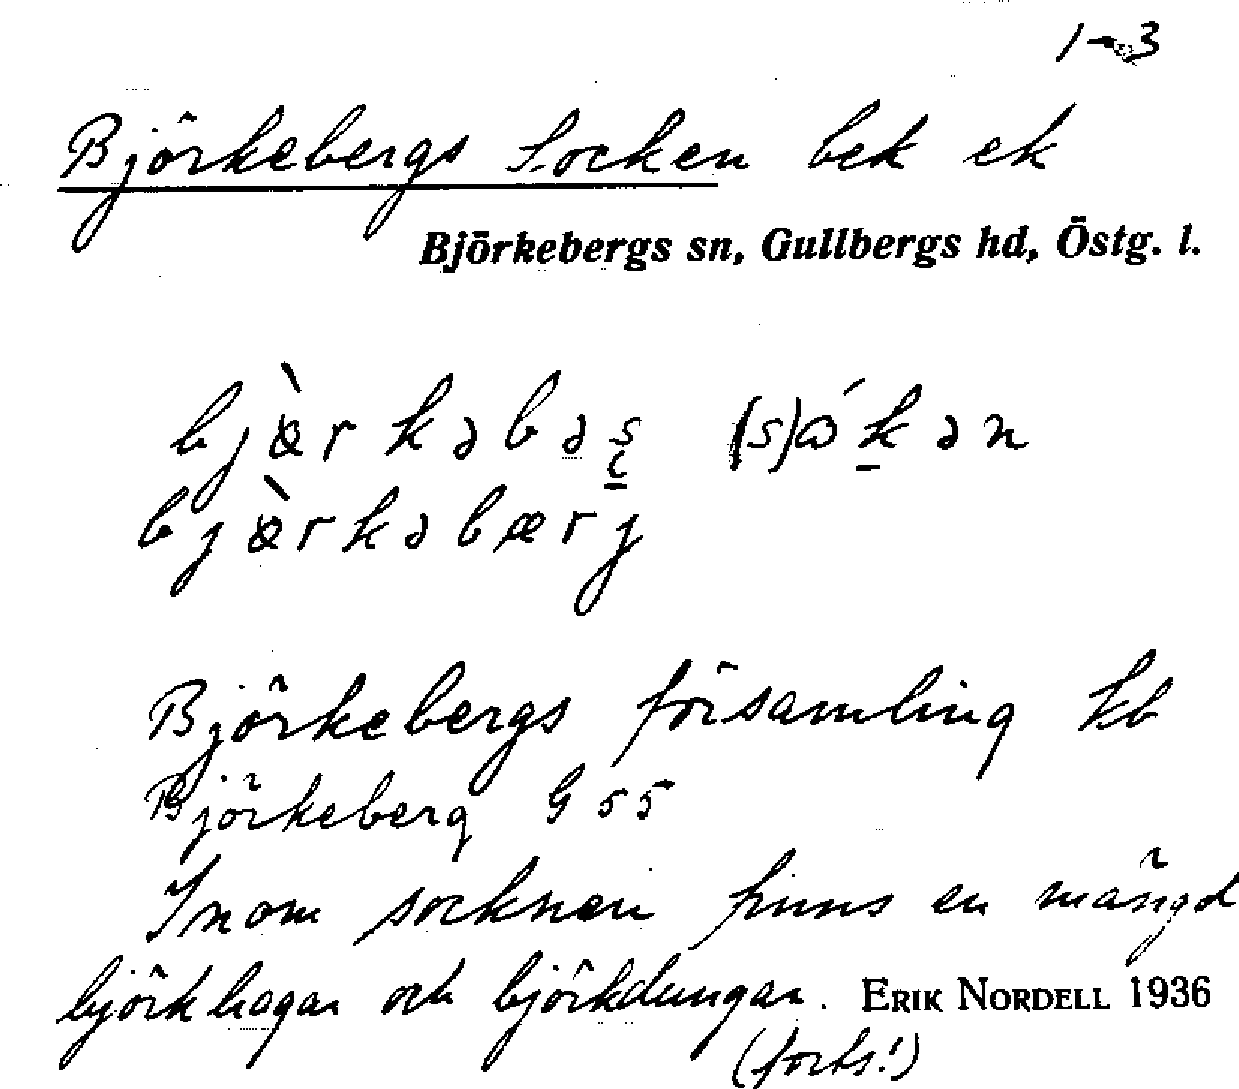 1-3
Björkebergs Socken bek ek
Björkebergs sn, Gullbergs hd, Östg. l.
bjæ̀rkəbəs̨ (s)ɷ́k̲ən
bjæ̀rkəbærj
Björkebergs församling kb
Björkeberg G 55
Inom socknen finns en mängd
björkhagar och björkdungar. ERIK NORDELL 1936
(forts!)